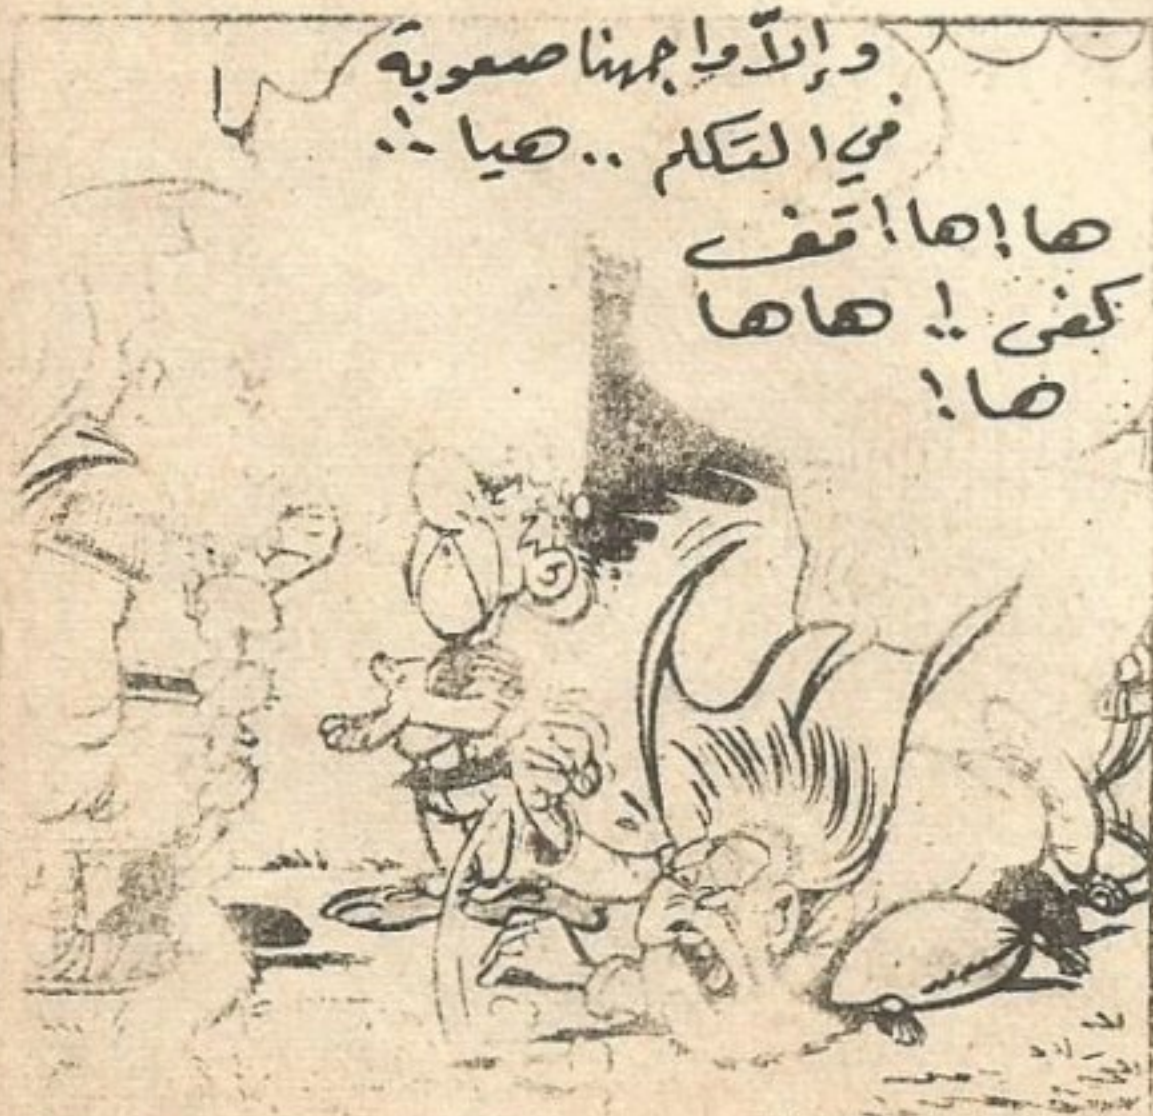 وإلاّ واجهنا صعوبة
في التكلم .. هيا !..
ها! ها! قف
كفى !.. هاها
ها!